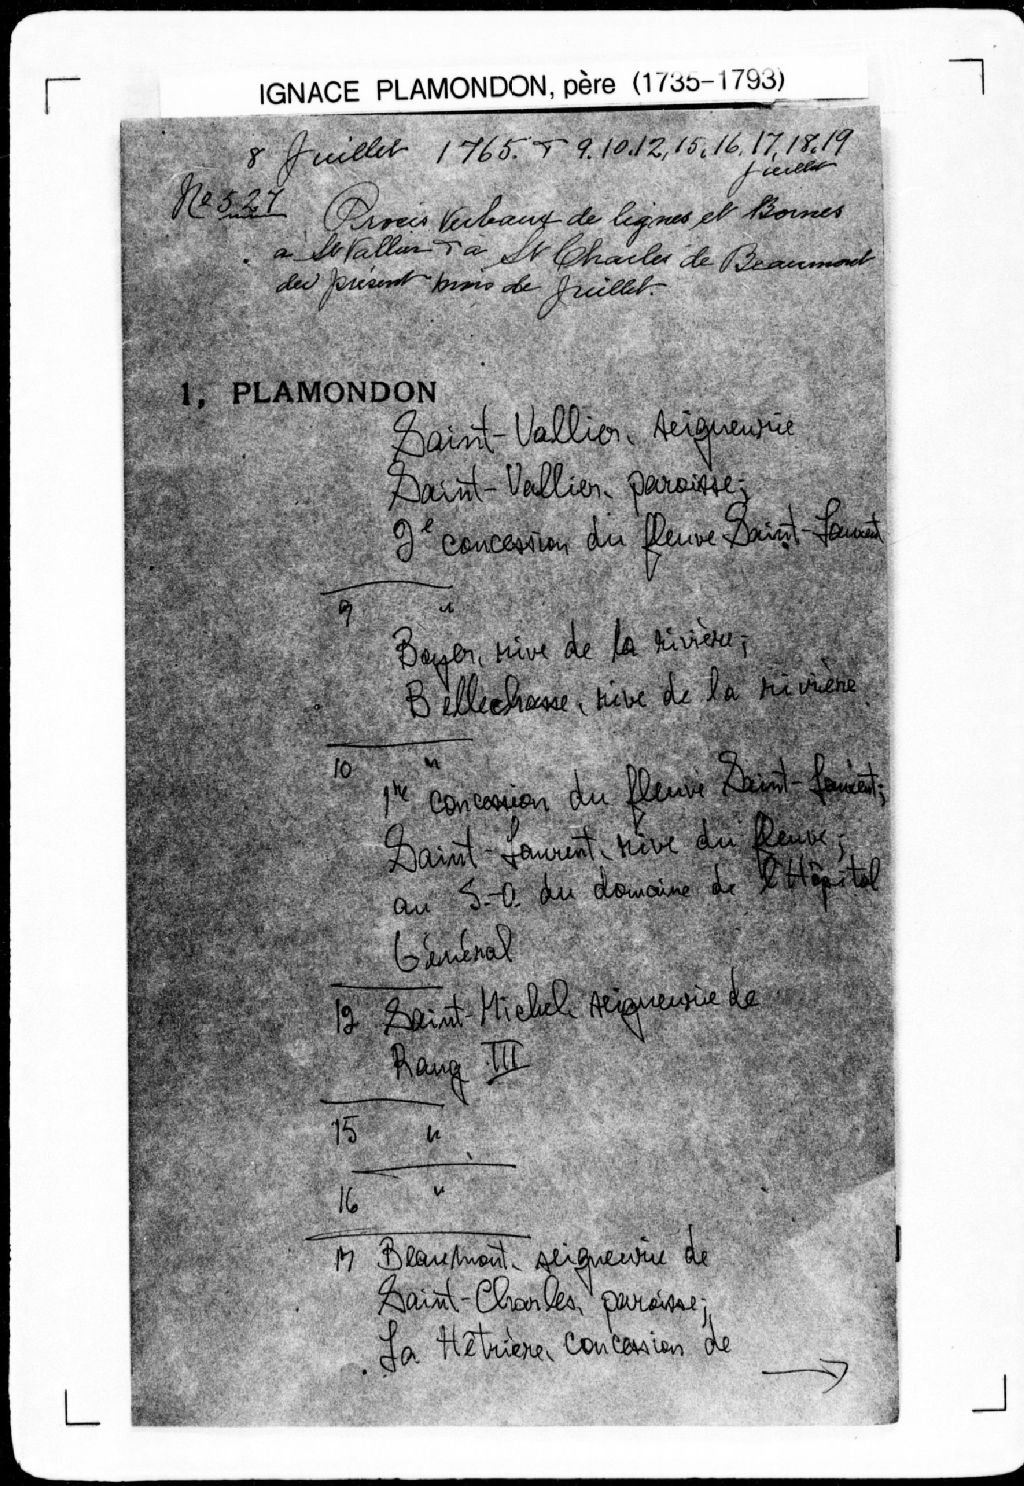 IGNACE PLAMONDON, père (1735-1793)
8 Juillet 1765. & 9.10.12,15,16,17,18,19
juillet
No 527
Procès Verbaux de lignes et Bornes
a St Vallier & a St Charles de Beaumont
du présent mois de Juillet.
1, PLAMONDON
Saint-Vallier, seigneurie
Saint-Vallier, paroisse;
2e concession du fleuve Saint-Laurent
9 "
Boyer, rive de la rivière;
Bellechasse, rive de la rivière
10 "
1re concession du fleuve Saint-Laurent;
Saint-Laurent, rive du fleuve;
au S.-O. du domaine de l'Hôpital
Général
12 Saint-Michel, seigneurie de
Rang III
15 "
16 "
17 Beaumont, seigneurie de
Saint-Charles, paroisse;
La Hêtrière, concession de
→